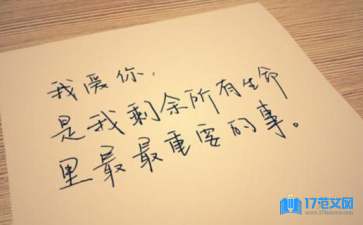 我爱你，
是我剩余所有生命
里最最重要的事。
17范文网